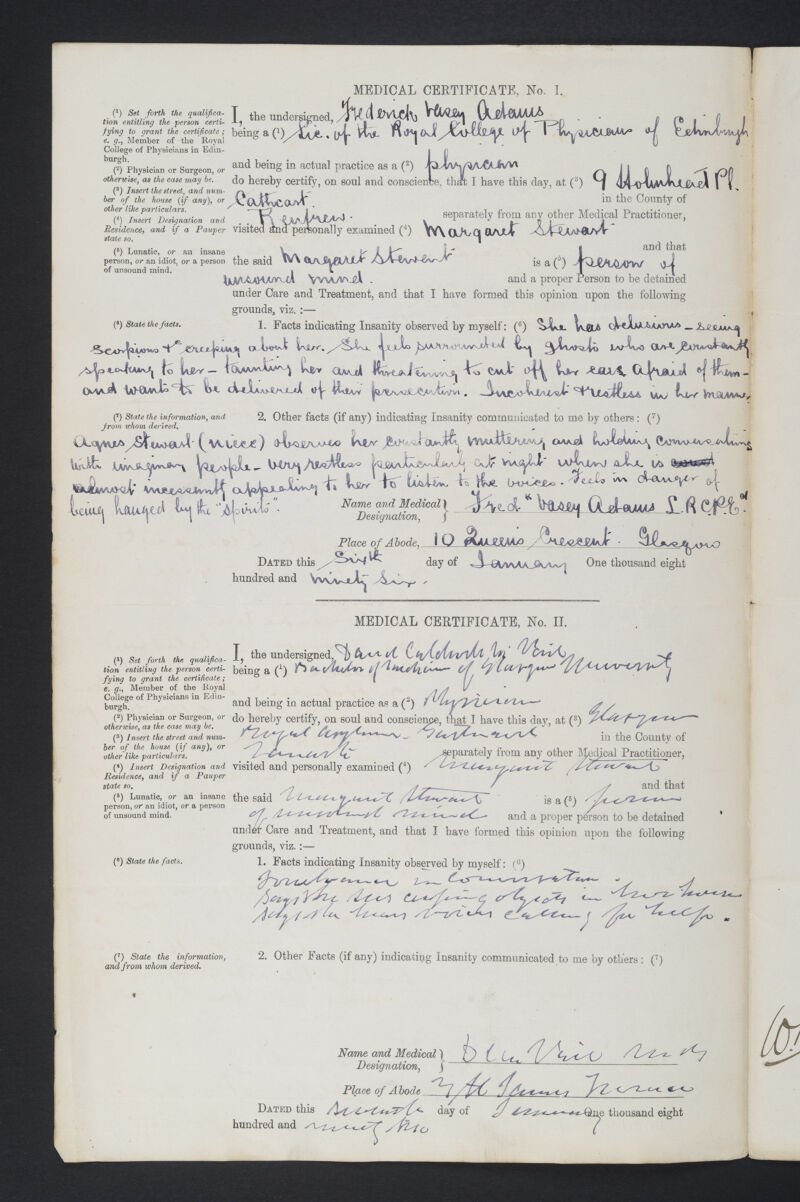 MEDICAL CERTIFICATE, No. I.
(¹) Set forth the qualifica-
tion entitling the person certi-
fying to grant the certificate;
e. g., Member of the Royal
College of Physicians in Edin-
burgh.
(²) Physician or Surgeon, or
otherwise, as the case may be.
(³) Insert the street, and num-
ber of the house (if any), or
other like particulars.
(⁴) Insert Designation and
Residence, and if a Pauper
state so.
(⁵) Lunatic, or an insane
person, or an idiot, or a person
of unsound mind.
I, the undersigned, Frederick Vasey Adams
being a (¹) Lic. of the Royal College of Physicians of Edinburgh
and being in actual practice as a (²) physician
do hereby certify, on soul and conscience, that I have this day, at (³) 9 Holmhead Pl.
Cathcart. in the County of
Renfrew. separately from any other Medical Practitioner,
visited and personally examined (⁴) Margaret Stewart
and that
the said Margaret Stewart is a (⁵) person of
unsound mind. and a proper Person to be detained
under Care and Treatment, and that I have formed this opinion upon the following
grounds, viz. :—
(⁶) State the facts.
1. Facts indicating Insanity observed by myself: (⁶) She has delusions – seeing
scorpions &c creeping about her. She feels surrounded by ghosts who are constantly
speaking to her – taunting her and threatening to cut off her ears. Afraid of them –
and wants to be delivered of their persecution. Incoherent & restless in her manner.
(⁷) State the information, and
from whom derived.
2. Other facts (if any) indicating Insanity communicated to me by others: (⁷)
Agnes Stewart (niece) observes her constantly muttering and holding conversations
with imaginary people – very restless particularly at night when she is
almost incessantly appealing to her to listen to the voices. Feels in danger of
being hanged by the "spirits".
Name and Medical Designation, Fredk Vasey Adams L.R.C.P.Ed
Place of Abode, 10 Queen's Crescent. Glasgow
DATED this Sixth day of January One thousand eight
hundred and ninety six.
MEDICAL CERTIFICATE, No. II.
(¹) Set forth the qualifica-
tion entitling the person certi-
fying to grant the certificate;
e. g., Member of the Royal
College of Physicians in Edin-
burgh.
(²) Physician or Surgeon, or
otherwise, as the case may be.
(³) Insert the street and num-
ber of the house (if any), or
other like particulars.
(⁴) Insert Designation and
Residence, and if a Pauper
state so.
(⁵) Lunatic, or an insane
person, or an idiot, or a person
of unsound mind.
I, the undersigned, David Caldwell
being a (¹) Bachelor of Medicine of Glasgow University
and being in actual practice as a (²) Physician
do hereby certify, on soul and conscience, that I have this day, at (³) Glasgow
Royal Asylum Gartnavel in the County of
Lanark separately from any other Medical Practitioner,
visited and personally examined (⁴) Margaret Stewart
and that
the said Margaret Stewart is a (⁵) person
of unsound mind and a proper person to be detained
under Care and Treatment, and that I have formed this opinion upon the following
grounds, viz. :—
(⁶) State the facts.
1. Facts indicating Insanity observed by myself: (⁶)
in Conversation.
Says she sees creeping objects in her house
Says she hears voices calling for help.
(⁷) State the information,
and from whom derived.
2. Other Facts (if any) indicating Insanity communicated to me by others: (⁷)
Name and Medical Designation,
Place of Abode 7 St James Terrace
DATED this seventh day of January One thousand eight
hundred and ninety six